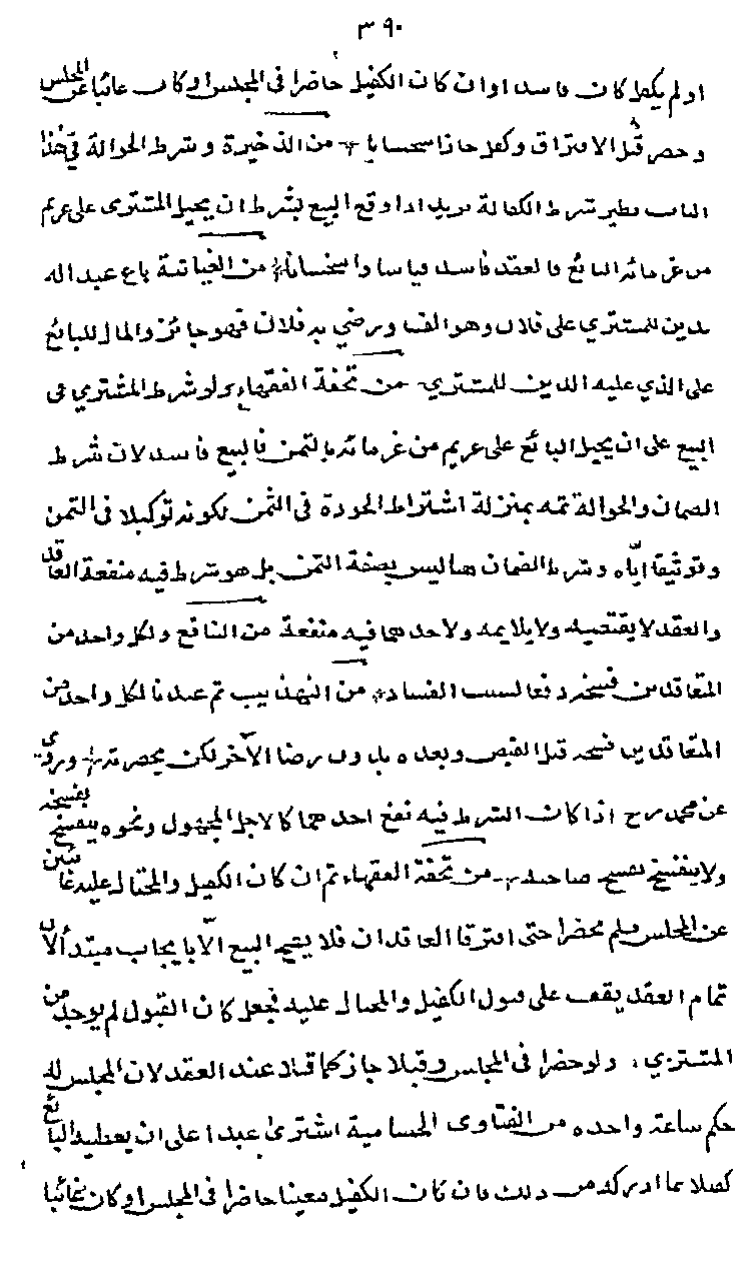 ٣٩٠
او لم يكفل كان فاسدا وان كان الكفيل حاضرا فى المجلس او كان غائبا عن المجلس
وحضر قبل الافتراق وكفل جاز استحسانا من الذخيرة وشرط الحوالة فى هذا
الباب نظير شرط الكفالة يريد اذا وقع البيع بشرط ان يحيل المشترى على غريم
من غرمائه البائع فالعقد فاسد قياسا واستحسانا من الغياثية باع عبدا له
بدين للمشتري على فلان وهو الف ورضي به فلان فهو جائز والمال للبائع
على الذي عليه الدين للمشتري من تحفة الفقهاء ولو شرط المشتري فى
البيع على ان يحيل البائع على غريم من غرمائه بالثمن فالبيع فاسد لان شرط
الضمان والحوالة ثمه بمنزلة اشتراط الجودة فى الثمن لكونه توكيلا فى الثمن
وتوثيقا اياه وشرط الضمان هنا ليس بصفة الثمن بل هو شرط فيه منفعة العاقد
والعقد لا يقتضيه ولا يلايمه ولاحدهما فيه منفعة من النافع ولكل واحد من
المتعاقدين فسخه دفعا لسبب الفساد من التهذيب ثم عندنا لكل واحد من
المتعاقدين فسخه قبل القبض وبعده بدون رضا الآخر لكن بحضرته وروى
عن محمد رح اذا كان الشرط فيه نفع احدهما كالاجل المجهول ونحوه ينفسخ بفسخه
ولا ينفسخ بفسخ صاحبه من تحفة الفقهاء ثم ان كان الكفيل والمحتال عليه غائبين
عن المجلس فلم يحضرا حتى افترقا العاقدان فلا يتم البيع الا بايجاب مبتدأ لان
تمام العقد يقف على قبول الكفيل والمحال عليه فجعل كان القبول لم يوجد من
المشتري ولو حضرا فى المجلس وقبلا جاز كما قبلا عند العقد لان المجلس له
حكم ساعة واحده من الفتاوى الحسامية اشترى عبدا على ان يعطيه البائع
كفيلا بما ادركه من ذلك فان كان الكفيل معينا حاضرا فى المجلس او كان غائبا